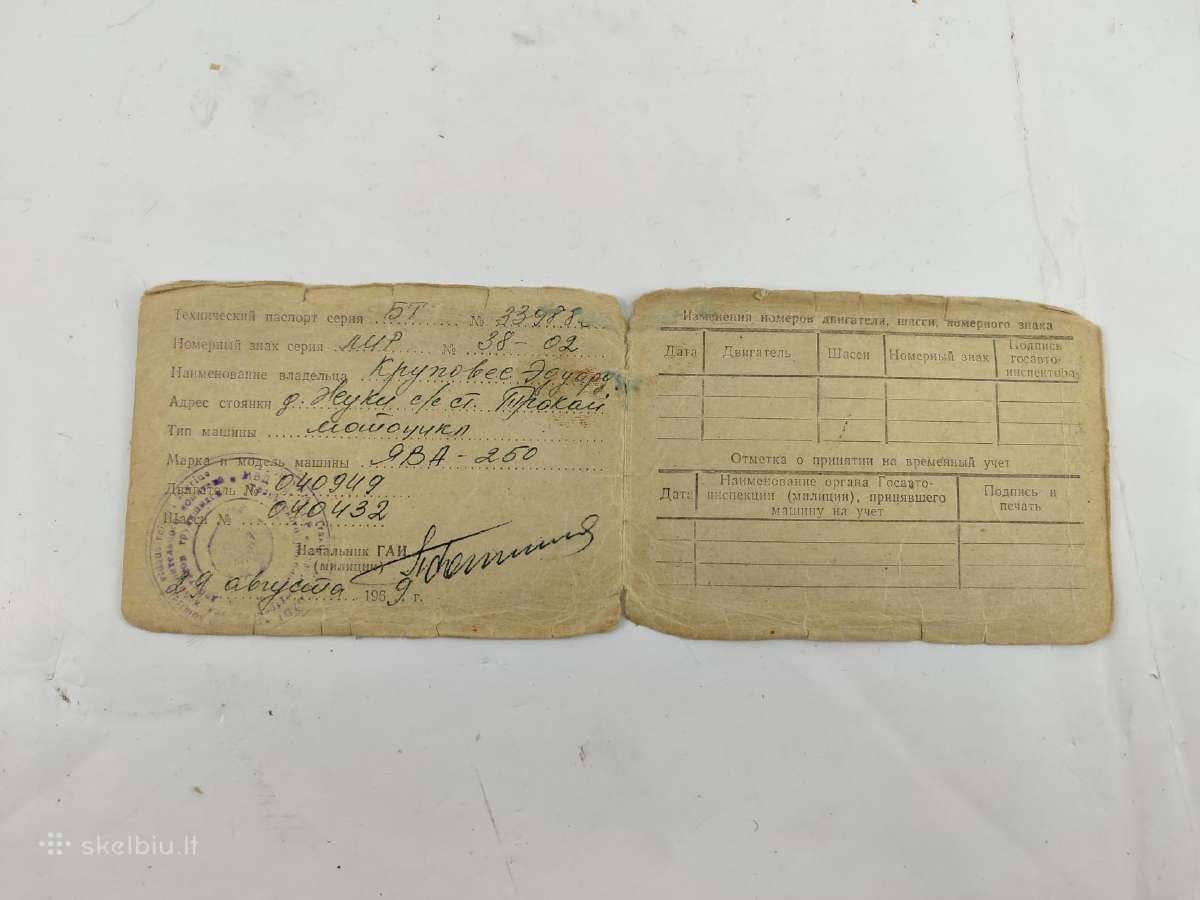 Технический паспорт серия БТ № 23988
Номерный знак серия ЛИР № 38-02
Наименование владельца Круповес Эдуард
Адрес стоянки д. Жуки с/с ст. Тракай
Тип машины мотоцикл
Марка и модель машины ЯВА-250
Двигатель № 040949
Шасси № 040432
Начальник ГАИ
(милиции)
29 августа 1969 г.
МВД
Изменения номеров двигателя, шасси, номерного знака
Дата Двигатель Шасси Номерный знак Подпись госавто-инспектора
Отметка о принятии на временный учет
Дата Наименование органа Госавто-инспекции (милиции), принявшего машину на учет Подпись и печать
skelbiu.lt